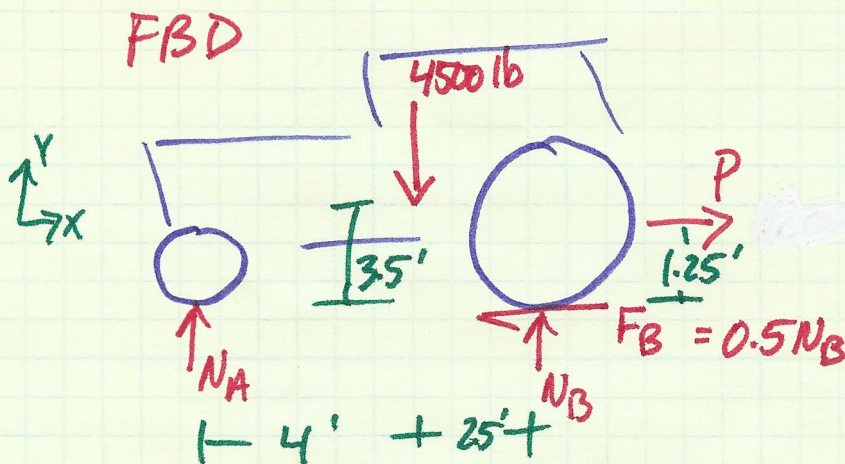 FBD
4500 lb
Y
X
P
3.5'
1.25'
F_B = 0.5 N_B
N_A
N_B
4' + 25' +